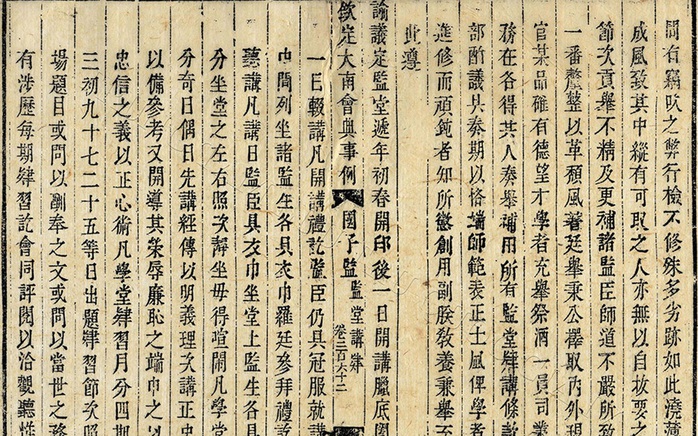 間有竊吹之弊行檢不修殊多劣跡如此澆薄
成風致其中縱有可取之人亦無以自拔要之
節次貢舉不精及更補諸監臣師道不嚴所致
一番整整以革頹風著廷舉秉公擇取內外現
官某品確有德望才學者充舉祭酒一員司業
務在各得其人奏舉補用所有監堂肄講條款
部酌議具奏期以恪端師範表正士風俾學者
進修而頑鈍者知所懲創用副朕敎養秉舉至
此遵
諭議定監堂遞年初春開印後一日開講臘底閣
欽定大南會典事例 國子監 監堂講肄 卷二百六十二
一日輟講凡開講禮訖監臣仍具冠服就講
中間列坐諸監生各具衣巾羅廷參拜禮訖
聽講凡講日監臣具衣巾坐堂上監生各具
分坐堂之左右照次靜坐毋得喧鬧凡學堂
分奇日偶日先講經傳以明義理次講正史
以備參考又開導其榮辱廉恥之端巾之以
忠信之義以正心術凡學堂肄習月分四期
三初九十七二十五等日出題肄習節次照
場題目或問以制奉之文或問以當世之務
有涉歷每期肄習訖會同評閱以洽觀聽